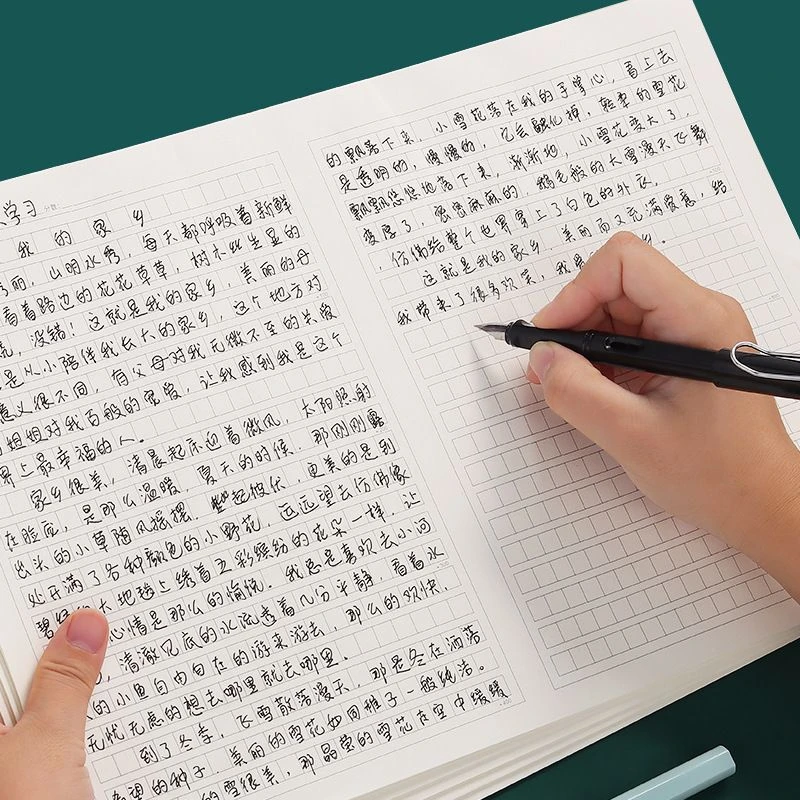 学习
我的家乡
秀丽,山明水秀,每天都呼吸着新鲜
看着路边的花花草草,树木些生显的
,没错!这就是我的家乡,美丽的母
是从小陪伴我长大的家乡,这个地方对
意义很不同,有父母对我无微不至的关爱
姐姐对我百般的宠爱,让我感到我是这个
界上最幸福的人。
家乡很美,清晨起床迎着微风,太阳照射
在脸应,是那么温暖,夏天的时候,那刚刚露
出头的小草随风摇摆,起彼伏,更美的是到
处开满了各种颜色的小野花,远远望去仿佛像
碧绿的大地毯上绣着五彩缤纷的花朵一样,让
心情是那么的愉悦。我总是喜欢去小河
,清澈见底的水流透着几分平静,看着水
的小鱼自由自在的游来游去,那么的欢快,
无忧无虑的想去哪里就去哪里。
到了冬季,飞雪散落漫天,那是冬在洒落
希望的种子,美丽的雪花如同稚子一般纯洁。
的雪很美,那晶莹的雪花在空中缓缓
的飘落下来,小雪花落在我的手掌心,看上去
是透明的,慢慢的,它会融化掉,轻柔的雪花
飘飘悠悠地落下来,渐渐地,小雪花变大了,
变厚了,密密麻麻的,鹅毛般的大雪漫天飞舞
,仿佛给整个世界穿上了白色的外衣。
这就是我的家乡,美丽而又充满爱意,给
我带来了很多欢笑,我是乡。